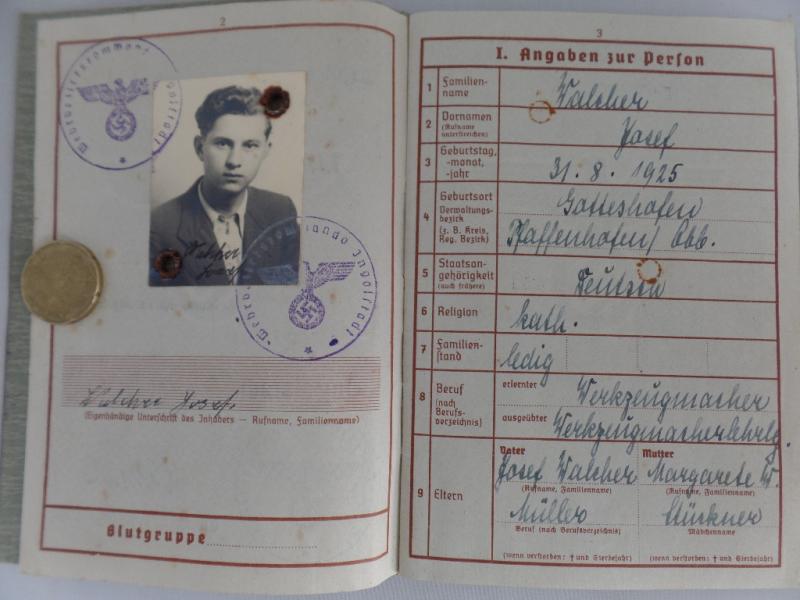 2
Wehrbezirkskommando Ingolstadt
Walcher
Josef
Wehrbezirkskommando Ingolstadt
Walcher Josef.
(Eigenhändige Unterschrift des Inhabers — Rufname, Familienname)
Blutgruppe
3
I. Angaben zur Person
1 Familien-
name
Walcher
2 Vornamen
(Rufname
unterstreichen)
Josef
3 Geburtstag,
-monat,
-jahr
31. 8. 1925
4 Geburtsort
Verwaltungs-
bezirk
(z. B. Kreis,
Reg. Bezirk)
Gotteshofen
Pfaffenhofen/ Obb.
5 Staatsan-
gehörigkeit
(auch frühere)
Deutsch
6 Religion
kath.
7 Familien-
stand
ledig
8 Beruf
(nach
Berufs-
verzeichnis)
erlernter Werkzeugmacher
ausgeübter Werkzeugmacherlehrlg.
9 Eltern
Vater
Josef Walcher
(Rufname, Familienname)
Müller
Beruf (nach Berufsverzeichnis)
(wenn verstorben: † und Sterbejahr)
Mutter
Margarete W.
(Rufname, Familienname)
Stückner
Mädchenname
(wenn verstorben: † und Sterbejahr)